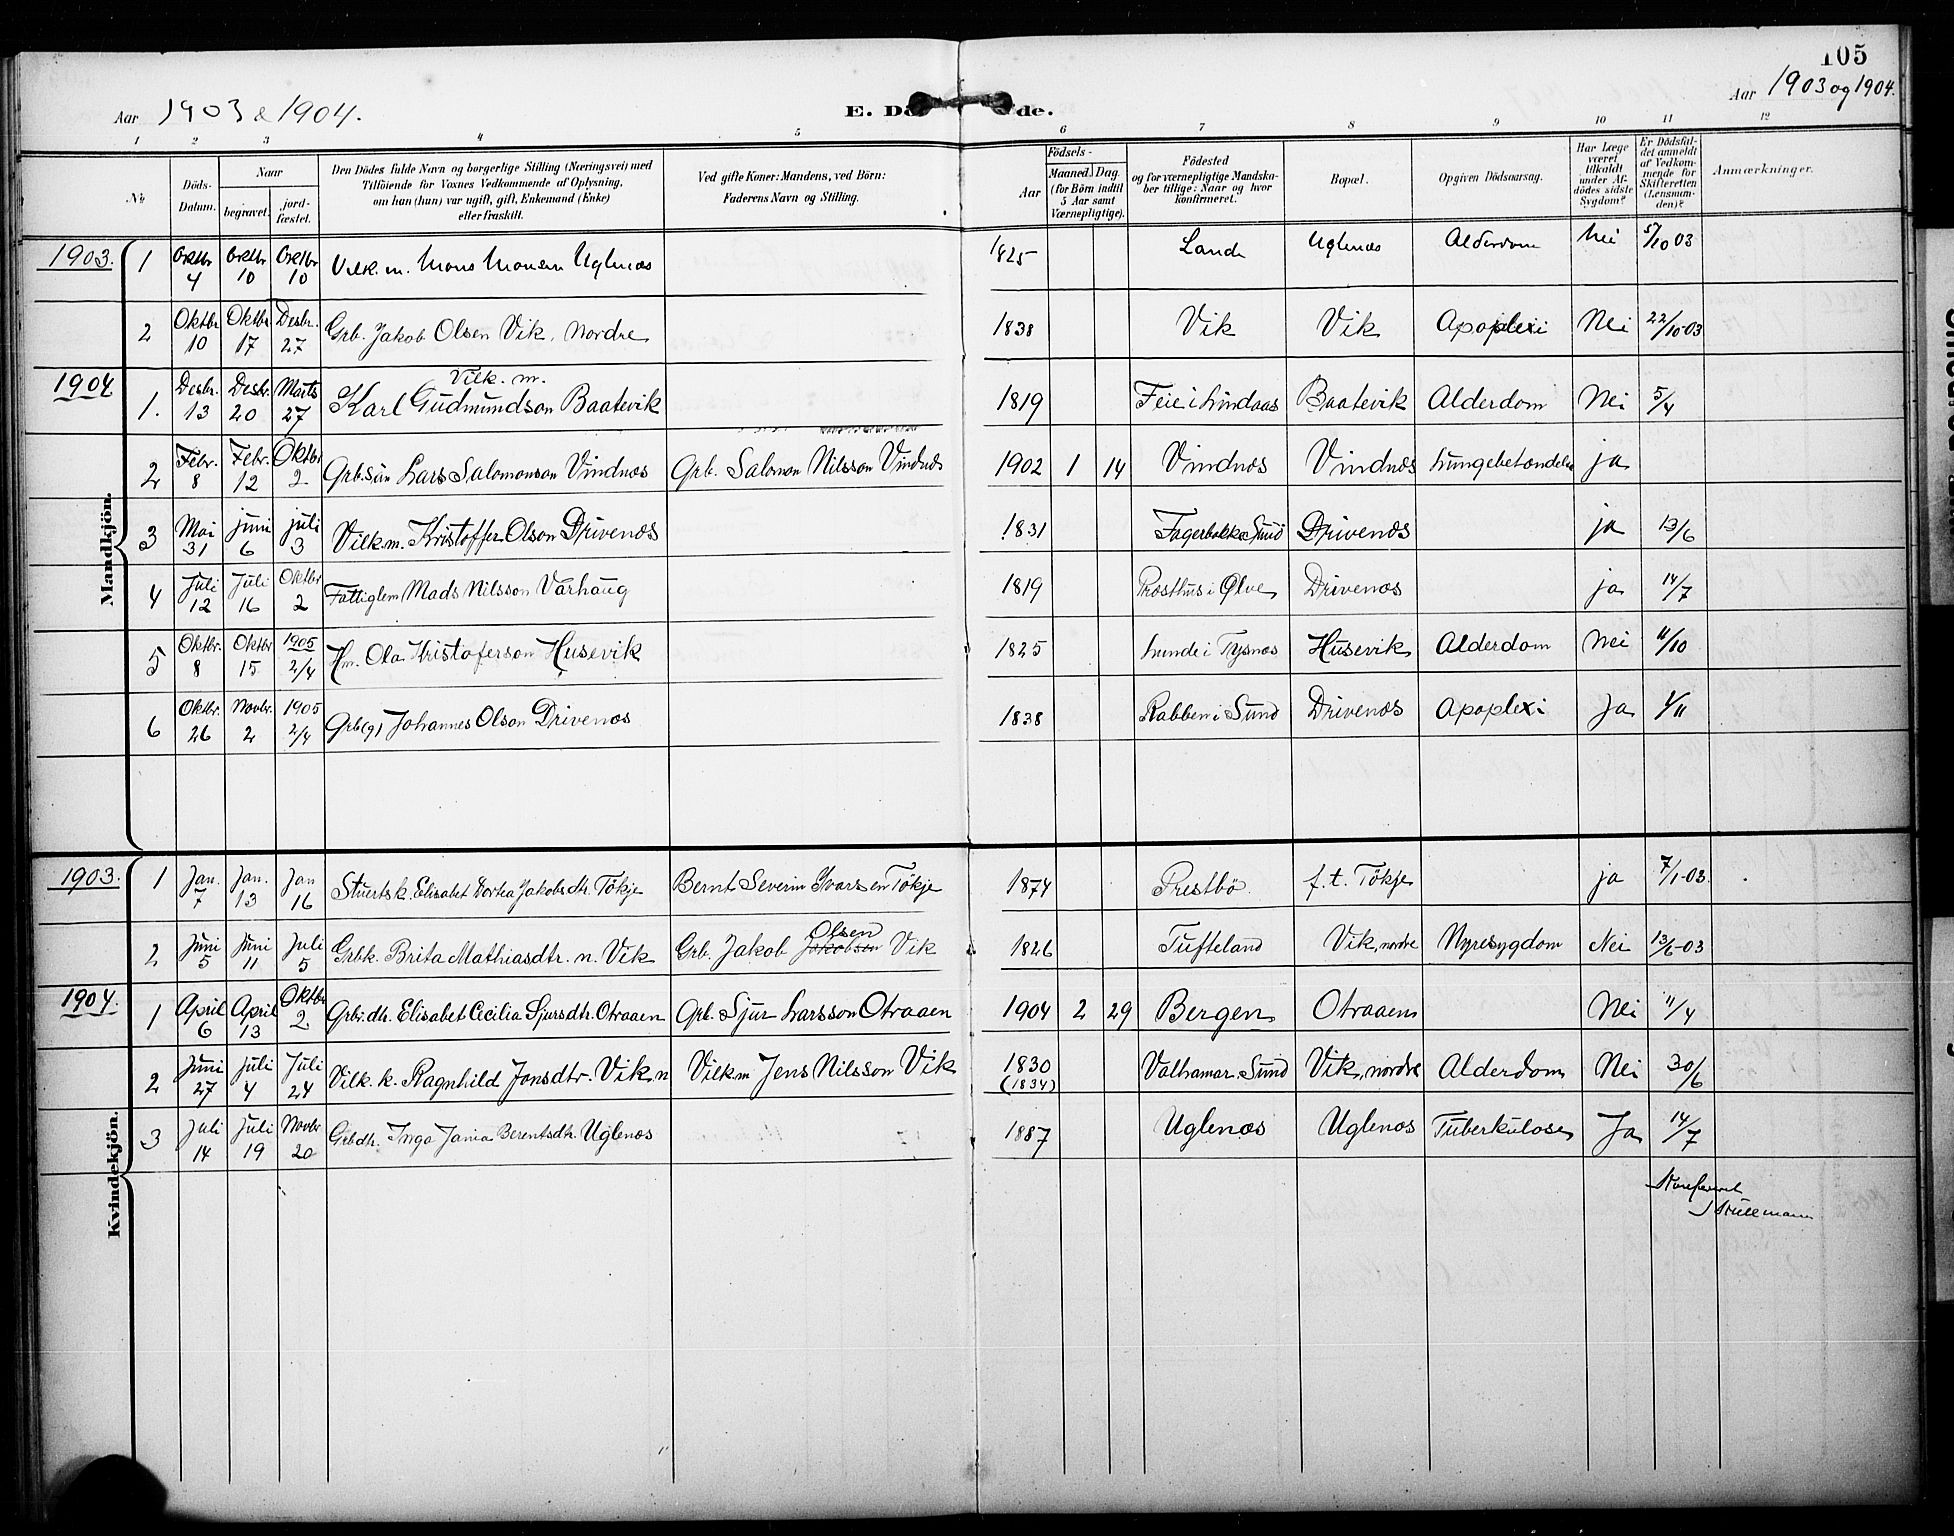 105
Aar 1903 & 1904.
E. Dö de.
Aar 1903 og 1904.
1 2 3 4 5 6 7 8 9 10 11 12
No
Döds-Datum.
Naar
begravet.
jord-fæstet.
Den Dödes fulde Navn og borgerlige Stilling (Næringsvei) med
Tilföiende for Voxnes Vedkommende af Oplysning,
om han (hun) var ugift, gift, Enkemand (Enke)
eller fraskilt.
Ved gifte Koner: Mandens, ved Börn:
Faderens Navn og Stilling.
Födsels-
Aar
Maaned. Dag.
(for Börn indtil
5 Aar samt
Værnepligtige).
Födested
og for værnepligtige Mandska-
ber tillige: Naar og hvor
konfirmeret.
Bopæl.
Opgiven Dödsaarsag.
Har Læge
været
tilkaldt
under Af-
dödes sidste
Sygdom?
Er Dödsfal-
det anmeldt
af Vedkom-
mende for
Skifteretten
(Lensman-
den)?
Anmærkninger.
Mandkjön.
1903. 1 Oktbr 4 Oktbr 10 Oktbr 10 Vilk. m. Mons Monsen Uglenæs 1825 Lande Uglenæs Alderdom Nei 5/10 03
2 Oktbr 10 Oktbr 17 Desbr. 27 Grb. Jakob Olsen Vik, Nordre 1838 Vik Vik Apoplexi Nei 22/10-03
1904 1. Desbr. 13 Desbr. 20 Marts 27 Vilk. m. Karl Gudmundson Baatevik 1819 Feie i Lindaas Baatevik Alderdom Nei 5/4
2 Febr. 8 Febr. 12 Oktbr 2 Grb. sön Lars Salomonson Vindnæs Grb. Salomon Nilsson Vindnæs 1902 1 14 Vindnæs Vindnæs Lungebetændelse ja
3 Mai 31 juni 6 juli 3 Vilk. m. Kristoffer Olson Drivenæs 1831 Fagerbakke Sund Drivenæs ja 13/6
4 Juli 12 Juli 16 Oktbr 2 Fattiglem Mads Nilsson Varhaug 1819 Prosthus i Ølve Drivenæs ja 14/7
5 Oktbr. 8 Oktbr 15 1905 2/4 Hm. Ola Kristoferson Husevik 1825 Lunde i Tysnæs Husevik Alderdom Nei 11/10
6 Oktbr. 26 Novbr. 2 1905 2/4 Grb (g) Johannes Olson Drivenæs 1838 Rabben i Sund Drivenæs Apoplexi Ja 1/11
Kvindekjön.
1903. 1 Jan. 7 Jan. 13 Jan 16 Stuertsk. Elisabet Dortea Jakobsdtr. Tökje Bernt Severin Ivarsen Tökje 1874 Prestbö f. t. Tökje ja 7/1-03.
2 Juni 5 Juni 11 Juli 5 Grbk. Brita Mathiasdtr. n. Vik Grb. Jakob Jakobsen Olsen Vik 1826 Tufteland Vik, nordre Nyresygdom Nei 13/6-03
1904. 1 April 6 April 13 Oktbr 2 Grb: dtr. Elisabet Cecilia Sjursdtr. Otraaen Grb. Sjur Larsson Otraaen 1904 2 29 Bergen Otraaen Nei 11/4
2 Juni 27 Juli 4 Juli 24 Vilk. k. Ragnhild Jonsdtr. Vik n Vilk. m Jens Nilsson Vik 1830 (1834) Valhamar. Sund Vik, nordre Alderdom Nei 30/6
3 Juli 14 Juli 19 Novbr 20 Grbdtr. Inga Jania Berentsdtr. Uglenæs 1887 Uglenæs Uglenæs Tuberkulose Ja 14/7